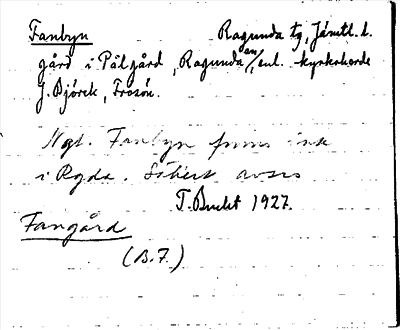 Fanbyn Ragunda tg, Jämtl. l.
gård i Pålgård, Ragunda an, enl. kyrkoherde
J. Björck, Frosön.
Ngt. Fanbyn finns icke
i Ragda. Säkert avses
T. Bucht 1927.
Fangård
(B.F.)